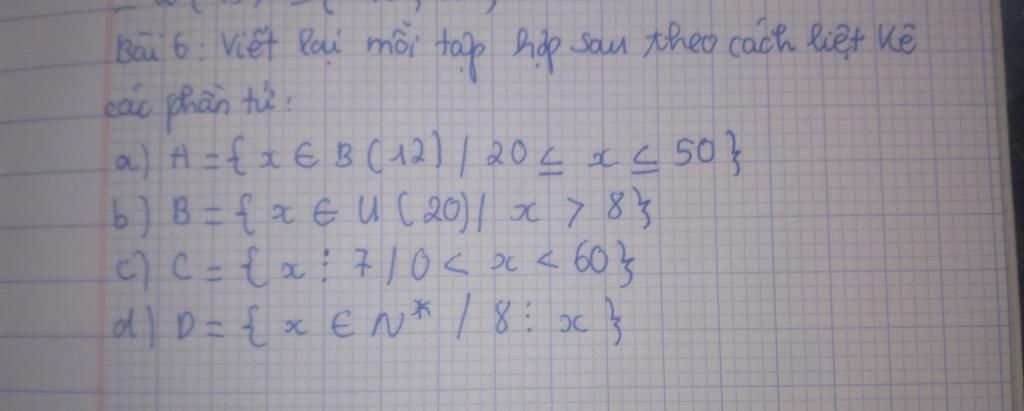 Bài 6: Viết lại mỗi tập hợp sau theo cách liệt kê
các phần tử:
a) A = { x ∈ B (12) / 20 ≤ x ≤ 50}
b) B = { x ∈ U (20) / x > 8}
c) C = { x ⋮ 7 / 0 < x < 60}
d) D = { x ∈ N* / 8 ⋮ x }